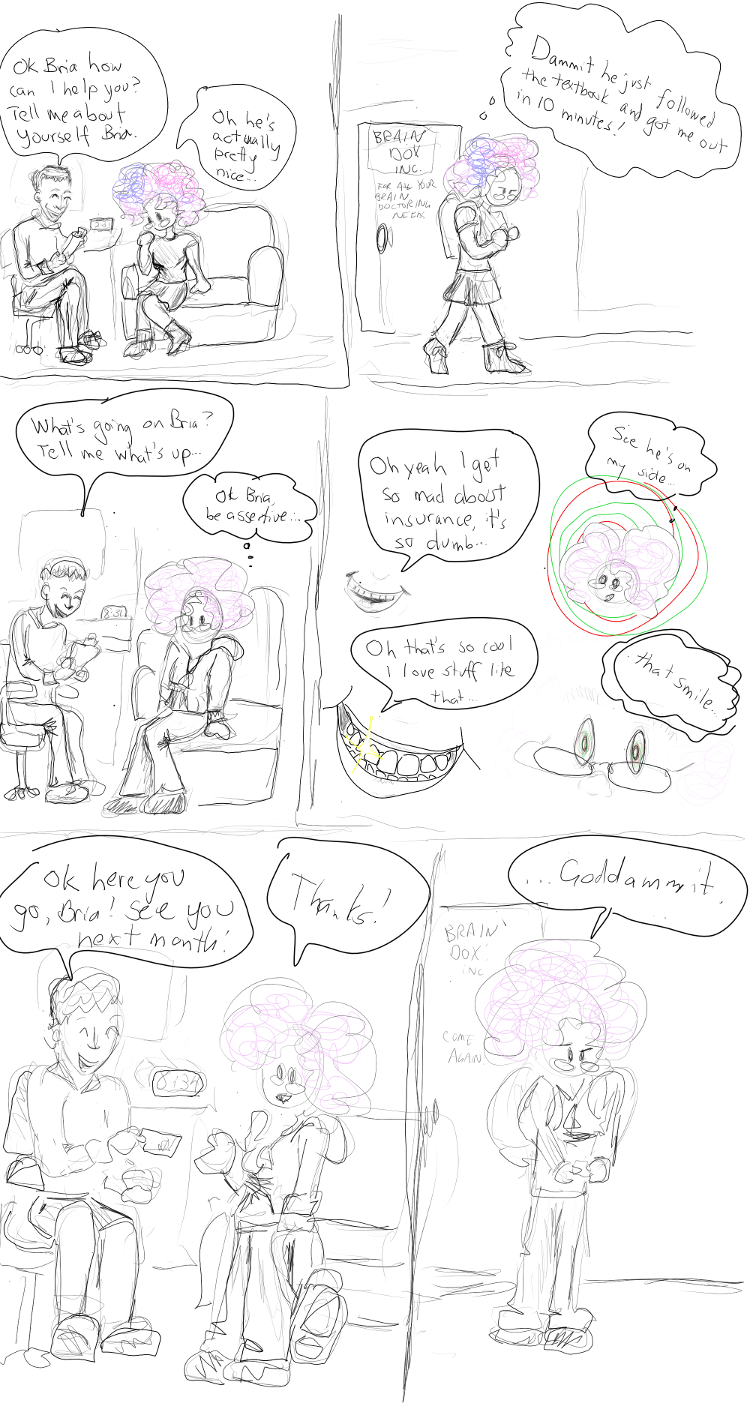 Ok Bria how
can I help you?
Tell me about
yourself Bria.
Oh he's
actually
pretty
nice...
Dammit he just followed
the textbook and got me out
in 10 minutes!
BRAIN
DOX
INC.
FOR ALL YOUR
BRAIN
DOCTORING
NEEDS
What's going on Bria?
Tell me what's up...
Ok Bria,
be assertive...
Oh yeah I get
so mad about
insurance, it's
so dumb...
See he's on
my side...
Oh that's so cool
I love stuff like
that...
that smile...
Ok here you
go, Bria! See you
next month!
Thanks!
...Goddammit.
BRAIN
DOX
INC
COME
AGAIN